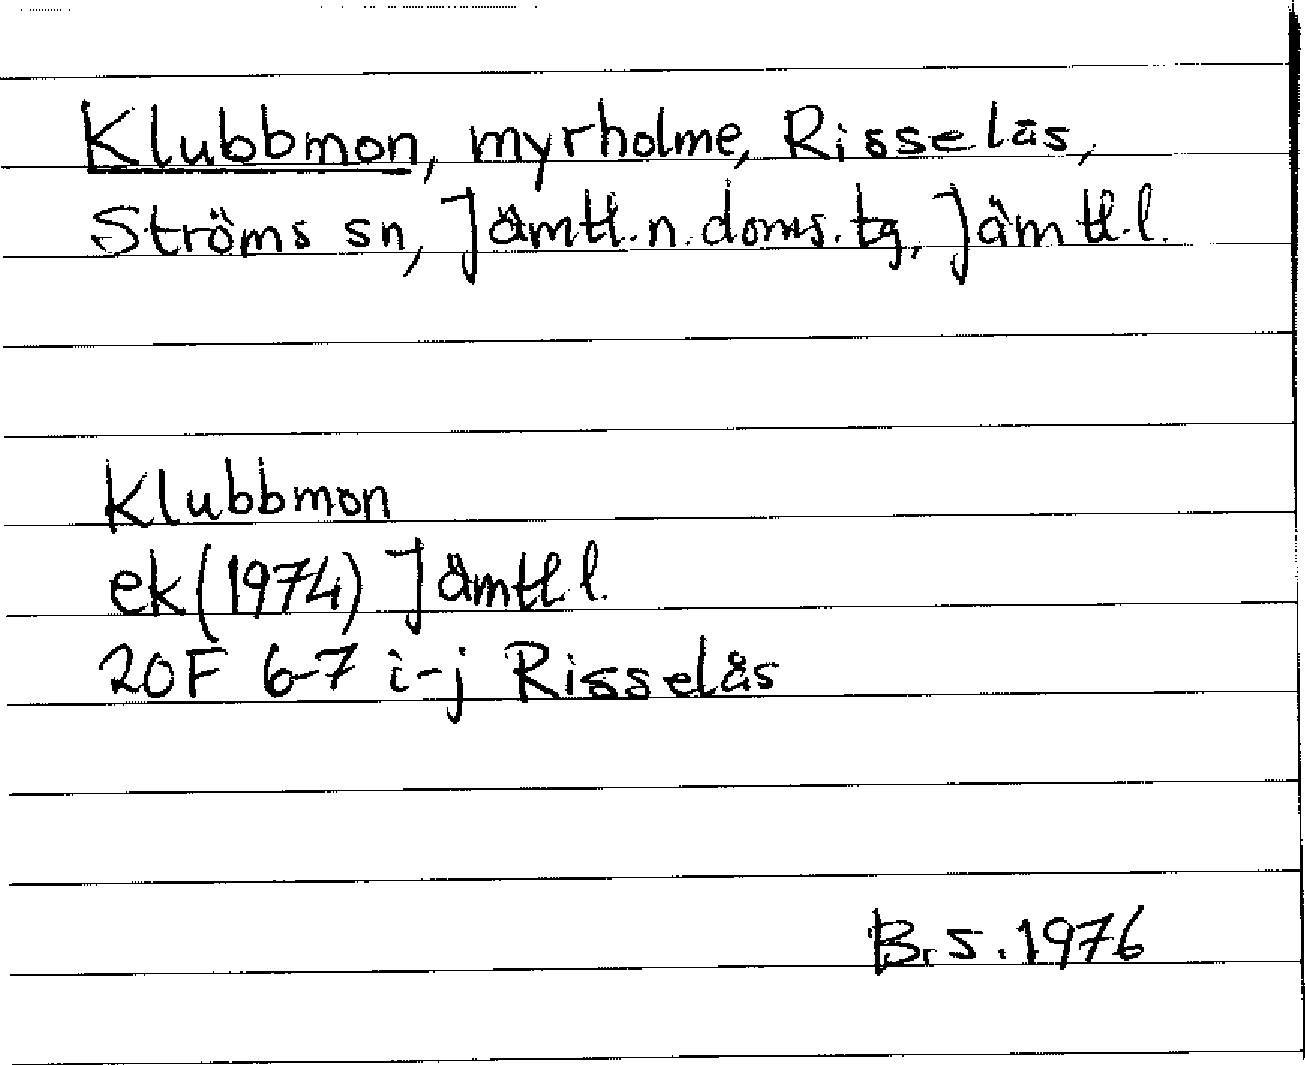 Klubbmon, myrholme, Risselås,
Ströms sn, Jämtl.n.doms.tg, Jämtl.l.
Klubbmon
ek (1974) Jämtl.l.
20F 6-7 i-j Risselås
B.S. 1976